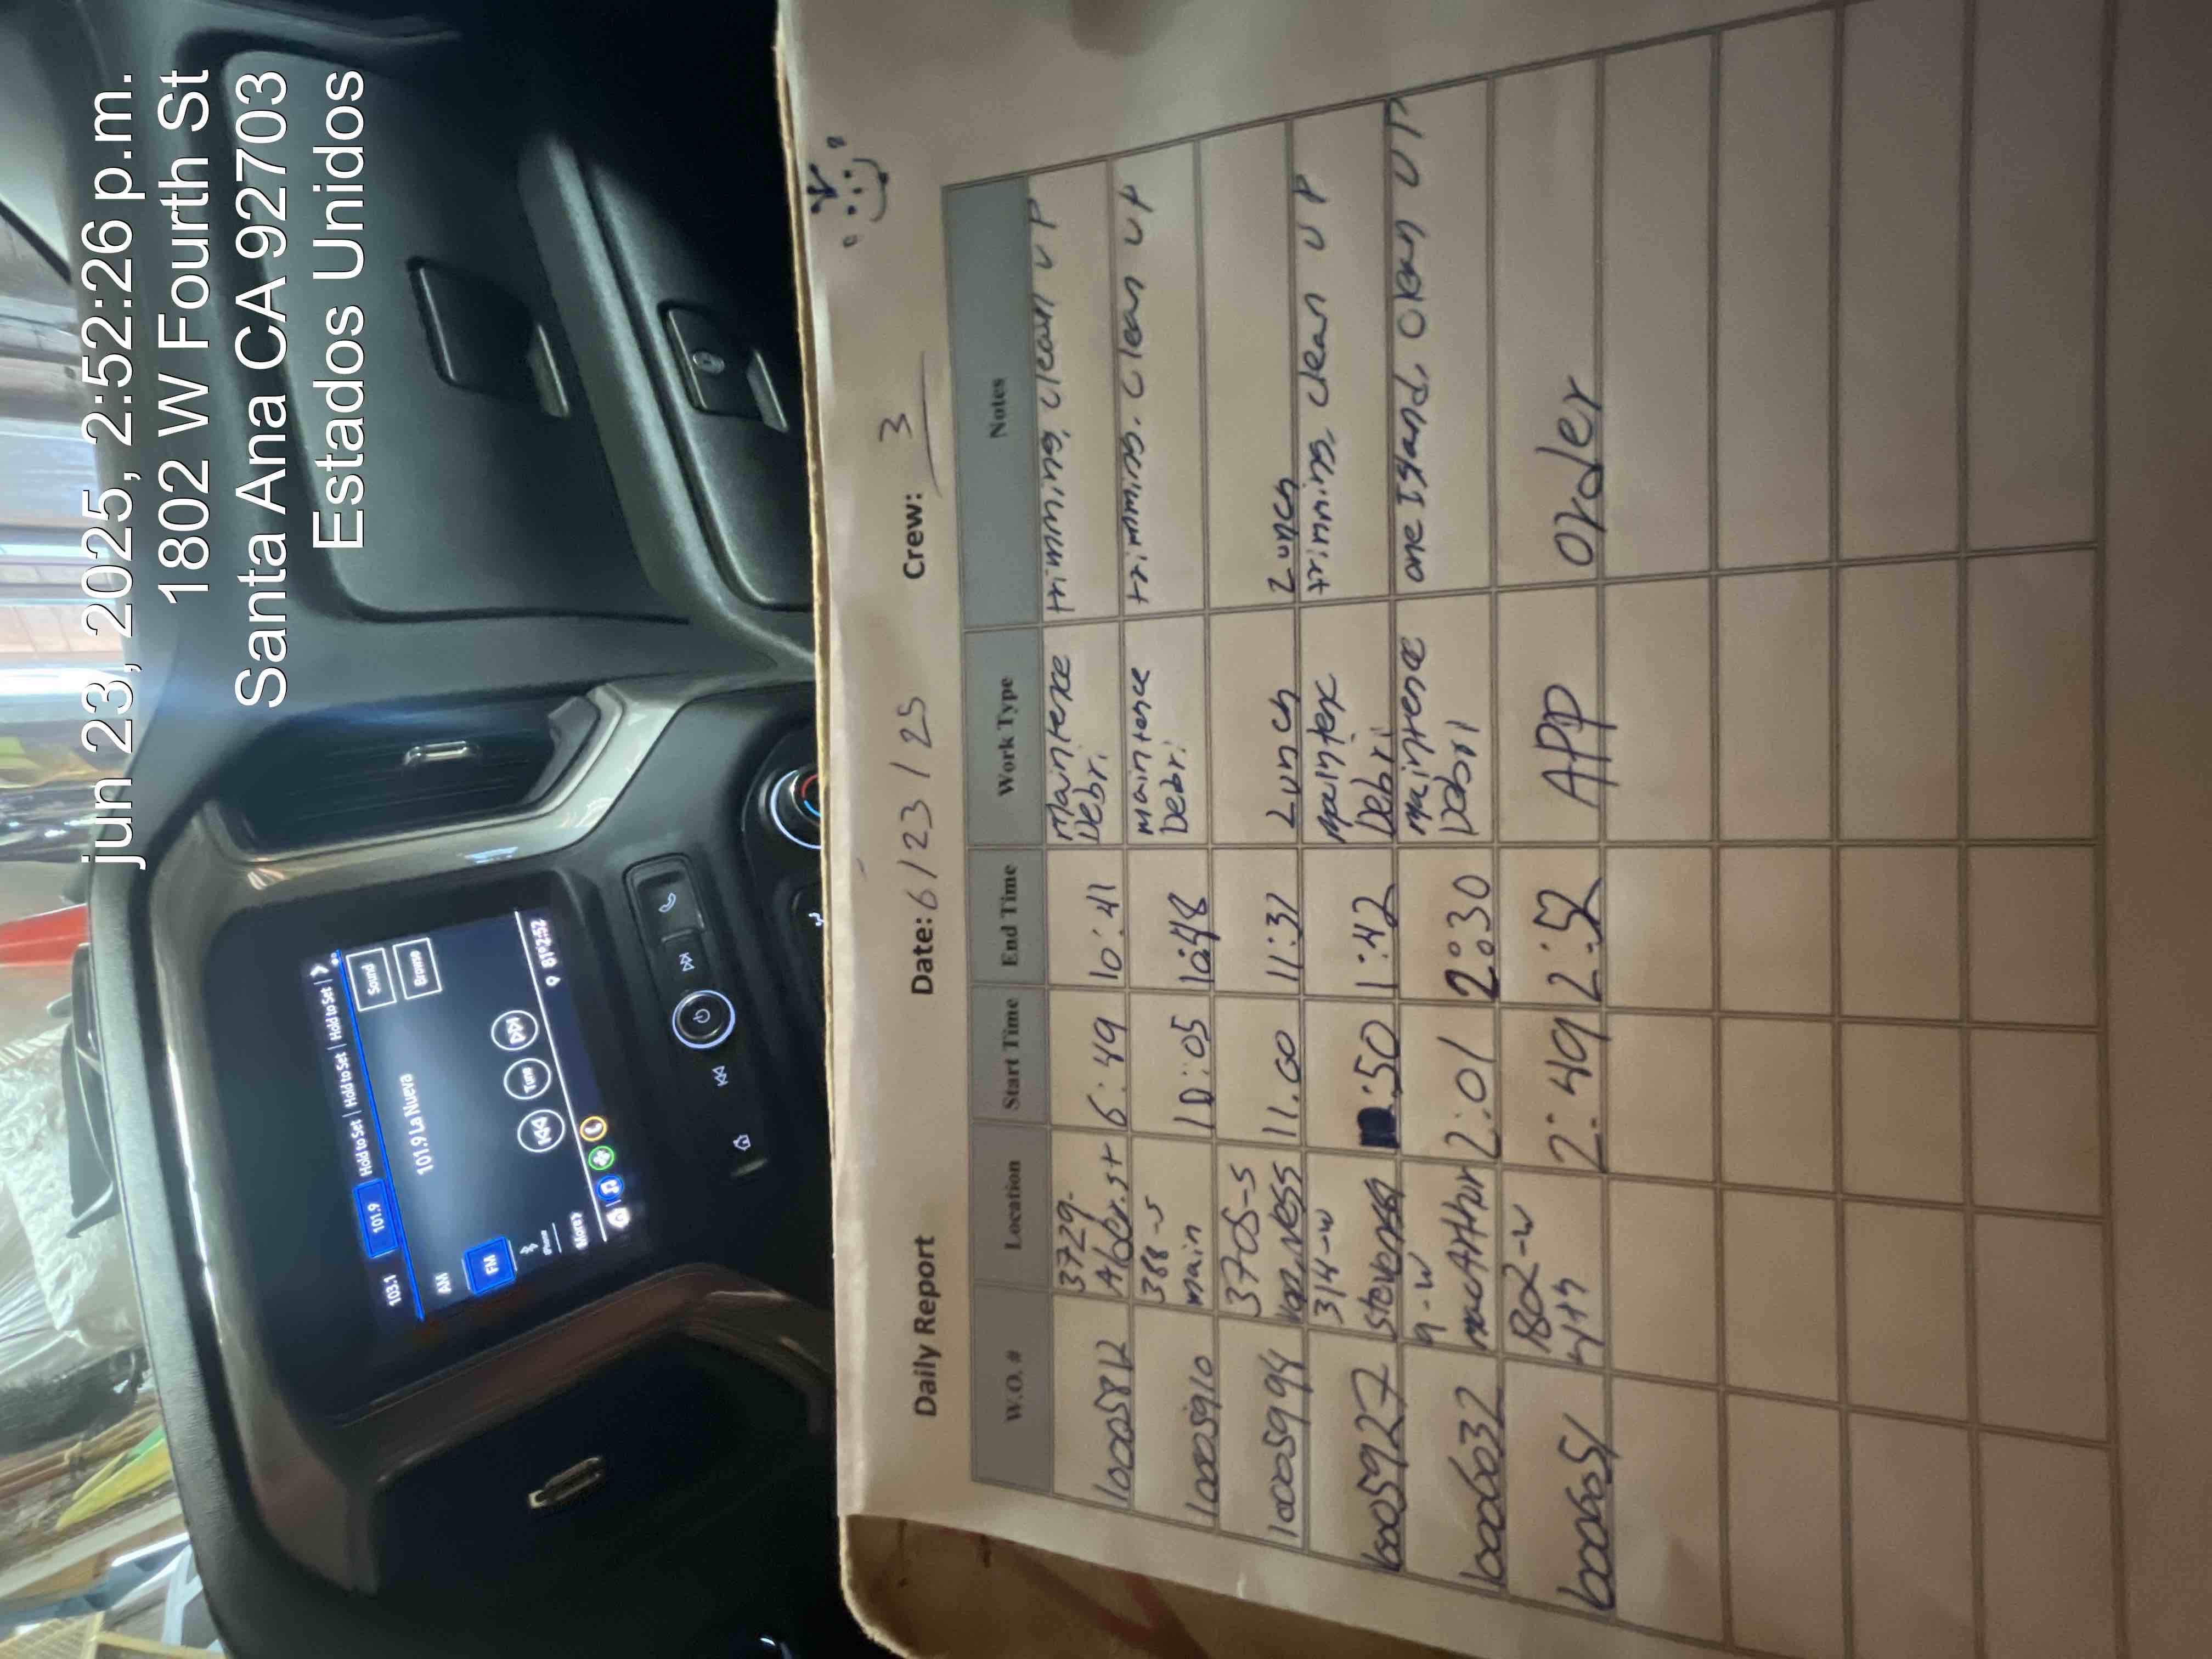 jun 23, 2025, 2:52:26 p.m.
1802 W Fourth St
Santa Ana CA 92703
Estados Unidos
103.1 101.9 Hold to Set Hold to Set Hold to Set
AM 101.9 La Nueva Sound
FM Browse
Tune
More
81° 2:52
Daily Report Date: 6/23/25 Crew: 3
W.O. # Location Start Time End Time Work Type Notes
3729- maintence trimming, clean UP
10005812 6:49 10:41 Debri
388-S maintence trimming. Clean UP
10005910 main 10:05 10:48 Debri
3705-S
10005994 van Ness 11:00 11:31 Lunch Lunch
314-w trimming, clean UP
10005927 :50 1:42 Debri
9-w maintrence one Island, clean UP
10006032 macArthur 2:01 2:30 Debri
10006051 4th 2:49 2:52 APP order